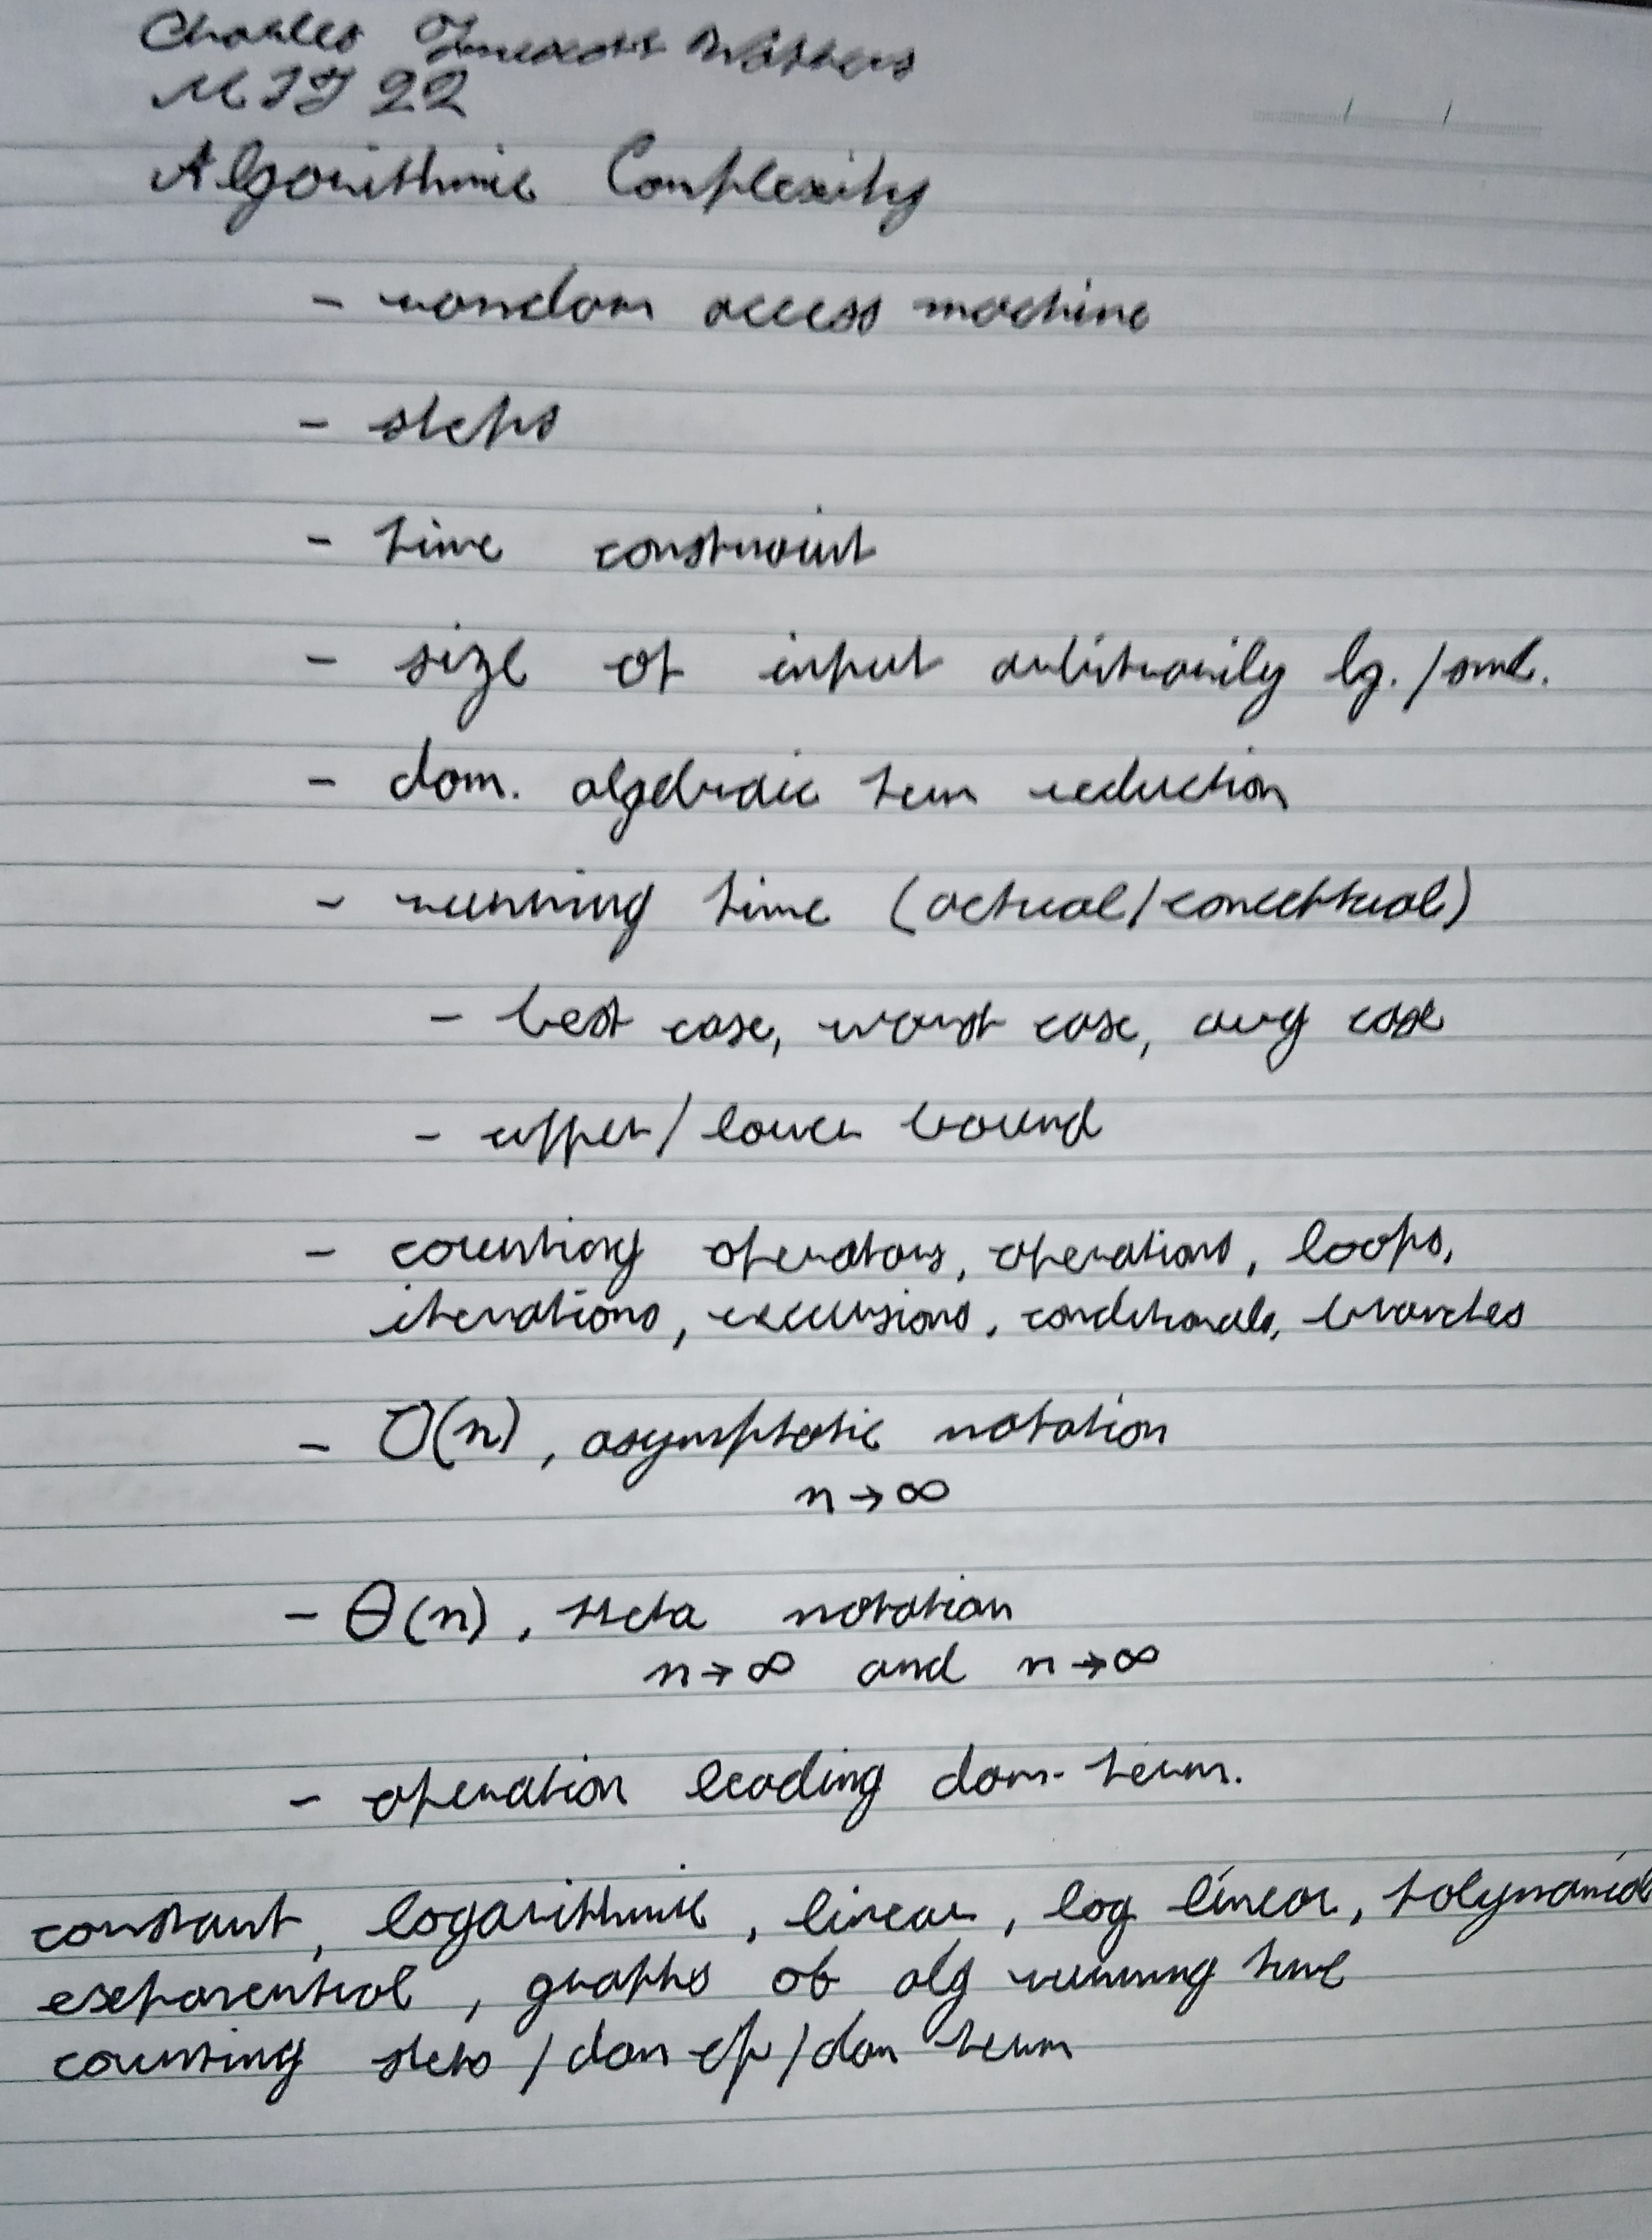 Charles
MIT 22
Algorithmic Complexity
- random access machine
- steps
- time constraint
- size of input arbitrarily lg./sml.
- dom. algebraic term reduction
- running time (actual/conceptual)
- best case, worst case, avg case
- upper/lower bound
- counting operators, operations, loops,
iterations, excursions, conditionals, branches
- O(n), asymptotic notation
n→∞
- Θ(n), theta notation
n→∞ and n→∞
- operation leading dom. term.
constant, logarithmic, linear, log linear, polynomial
exponential, graphs of alg running time
counting steps / dom op / dom term